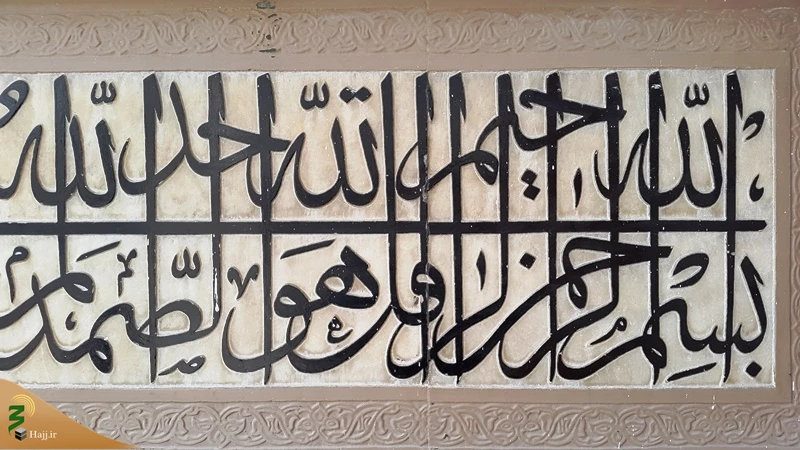 بسم الله الرحمن الرحيم قل هو الله احد الله الصمد لم
Hajj.ir